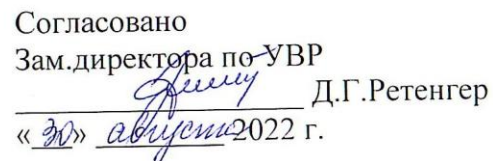 Согласовано
Зам.директора по УВР
Д.Г.Ретенгер
«30» августа 2022 г.